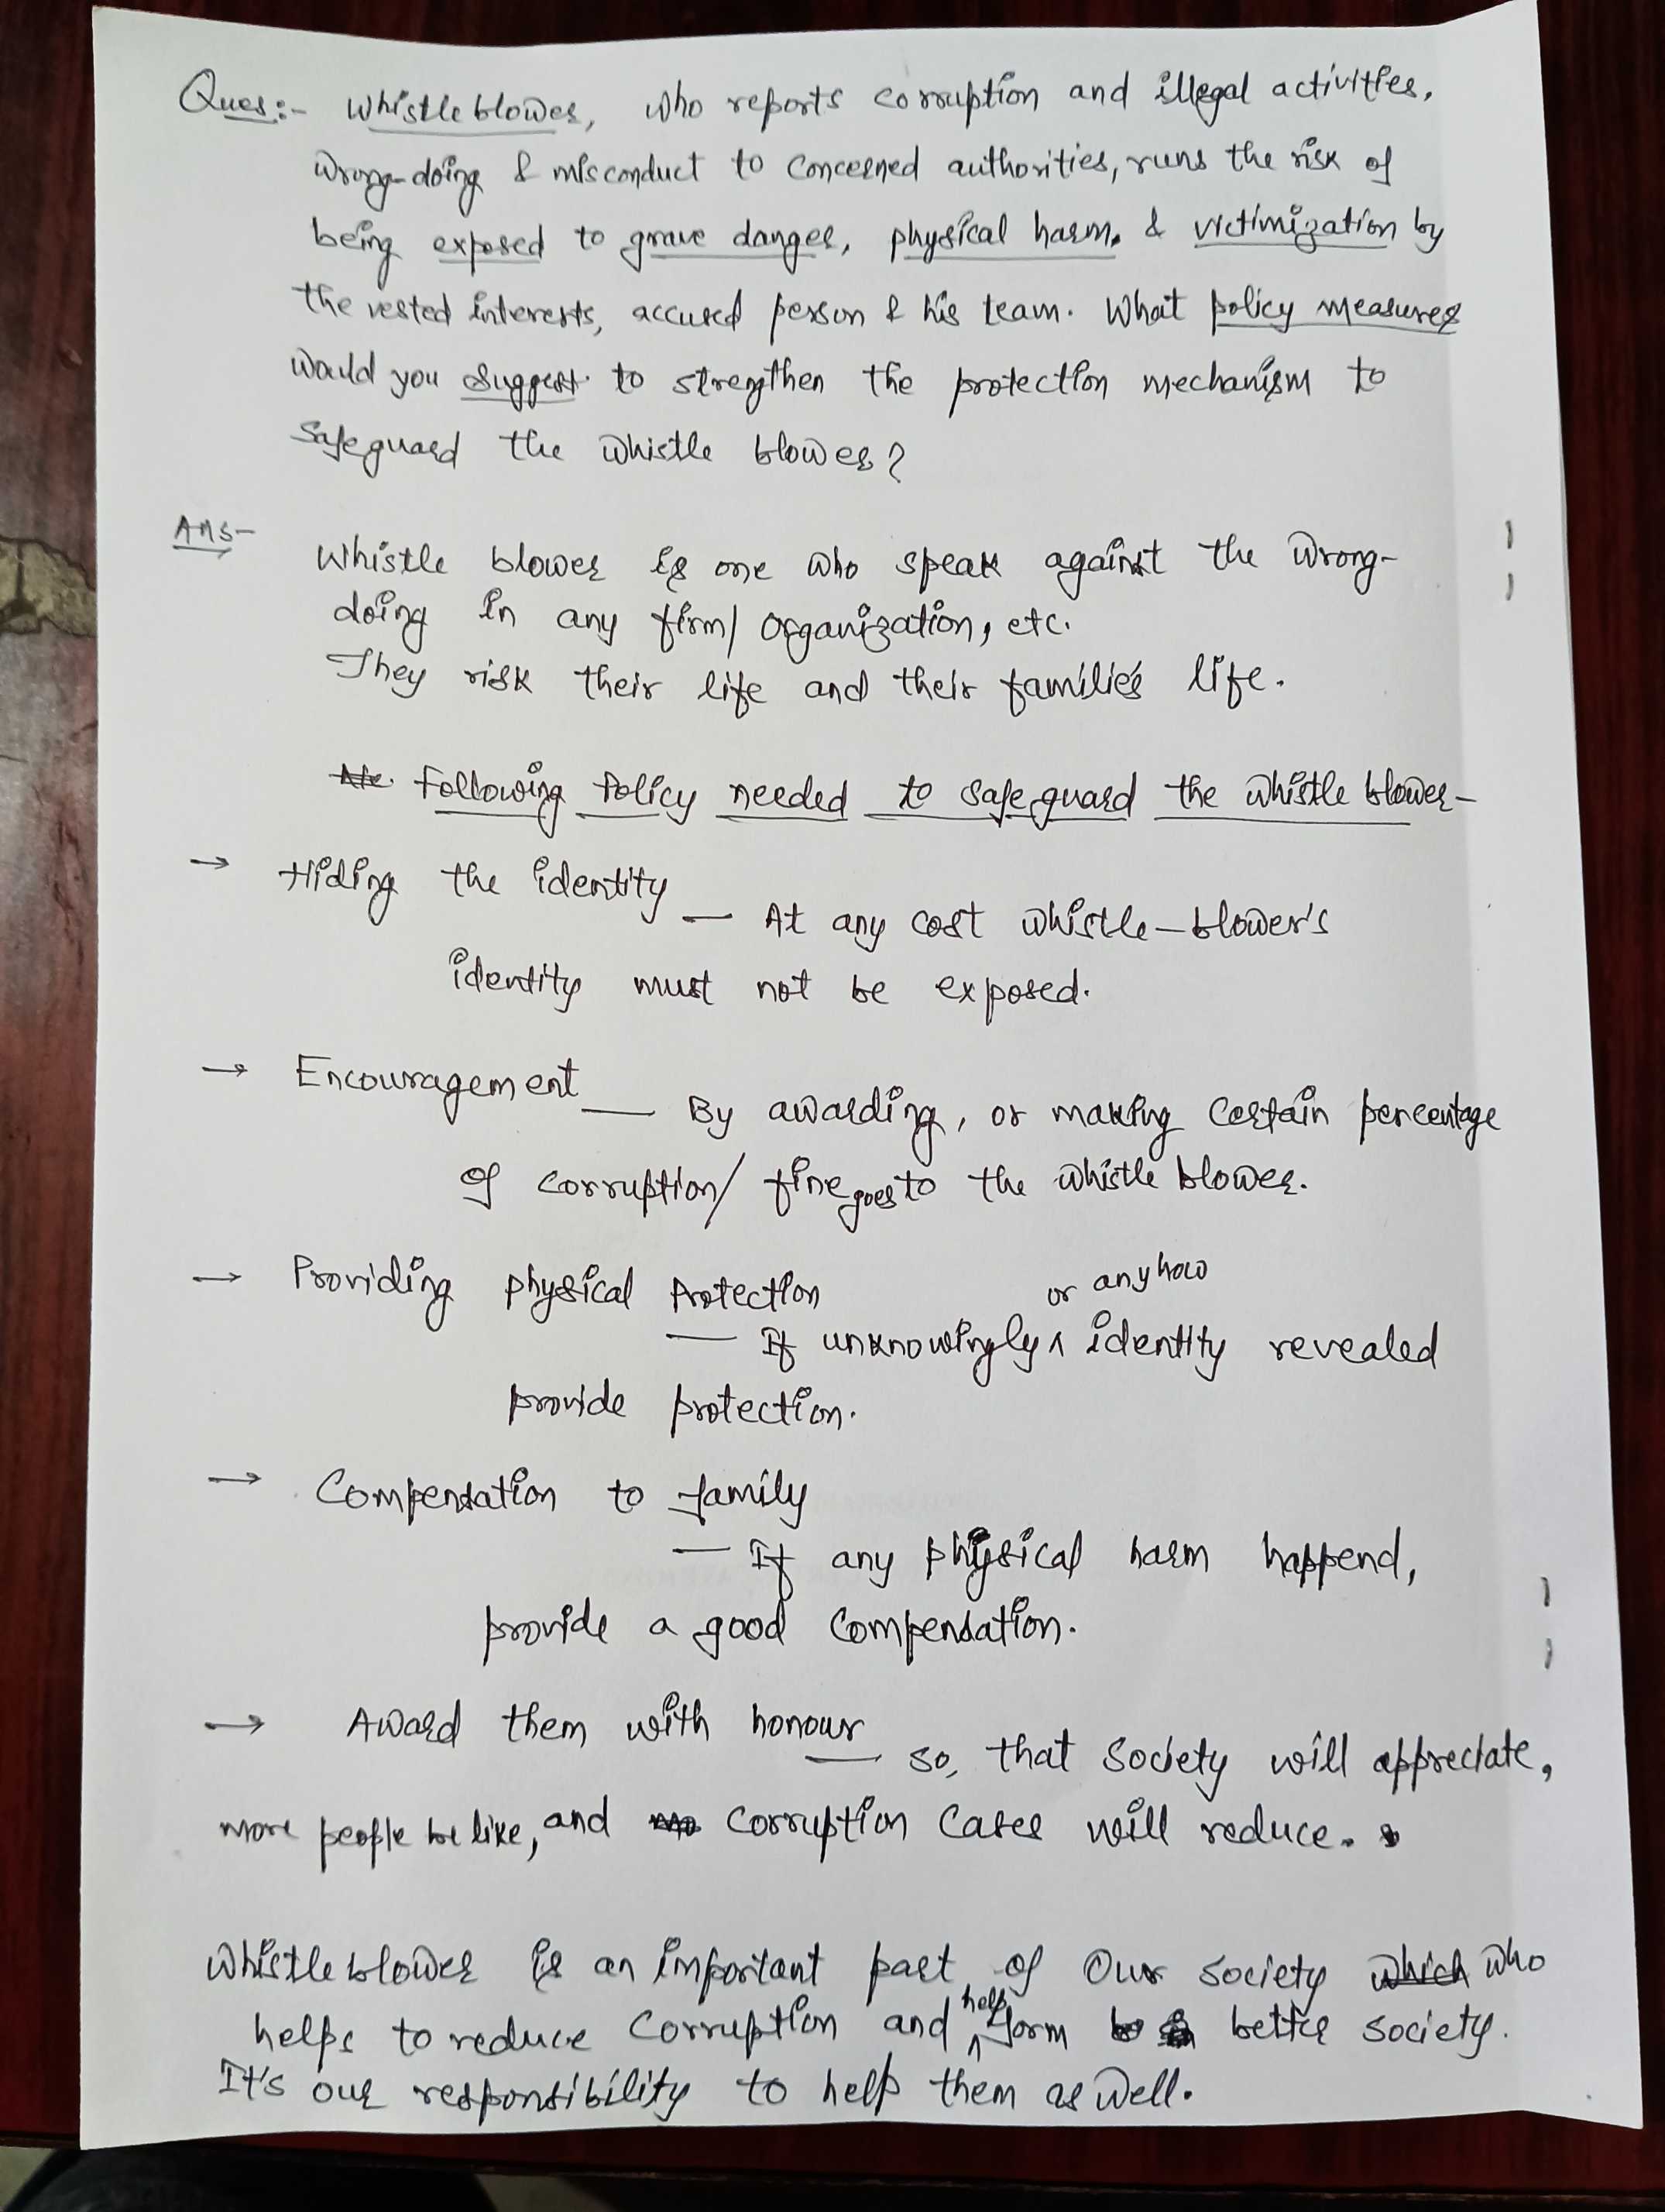 Ques:- Whistle blower, who reports corruption and illegal activities,
wrong-doing & misconduct to concerned authorities, runs the risk of
being exposed to grave danger, physical harm, & victimization by
the vested interests, accused person & his team. What policy measures
would you suggest to strengthen the protection mechanism to
safeguard the whistle blower?
Ans- Whistle blower is one who speak against the wrong-
doing in any firm/ organization, etc.
They risk their life and their families life.
Following Policy needed to safe guard the whistle blower-
→ Hiding the identity — At any cost whistle-blower's
identity must not be exposed.
→ Encouragement — By awarding, or making certain percentage
of corruption/ fine goes to the whistle blower.
→ Providing physical Protection
— If unknowingly or anyhow identity revealed
provide protection.
→ Compensation to family
— If any physical harm happend,
provide a good compensation.
→ Award them with honour — so, that society will appreciate,
more people be like, and corruption cases will reduce.
Whistle blower is an important part of our society which who
helps to reduce corruption and help form better society.
It's our responsibility to help them as well.